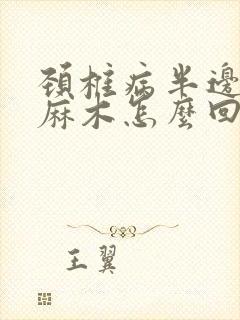 頚椎病半邊
麻木怎麼回
王翼